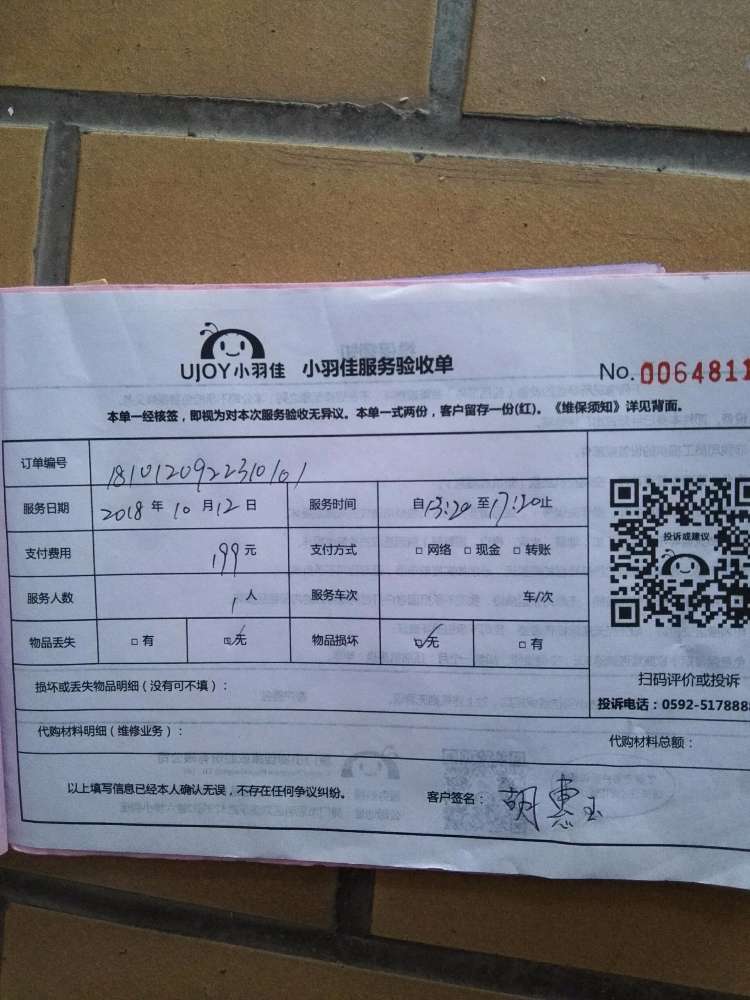 UJOY小羽佳 小羽佳服务验收单 No. 0064811
本单一经核签，即视为对本次服务验收无异议。本单一式两份，客户留存一份(红)。《维保须知》详见背面。
订单编号 1810120922310101
服务日期 2018 年 10 月 12 日 服务时间 自 13:20 至 17:20 止
支付费用 199 元 支付方式 □ 网络 □ 现金 □ 转账
服务人数 1 人 服务车次 车/次
物品丢失 □ 有 ☑ 无 物品损坏 ☑ 无 □ 有
投诉或建议
扫码评价或投诉
损坏或丢失物品明细（没有可不填）：
投诉电话：0592-517888
代购材料明细（维修业务）： 代购材料总额：
以上填写信息已经本人确认无误，不存在任何争议纠纷。 客户签名： 胡惠玉